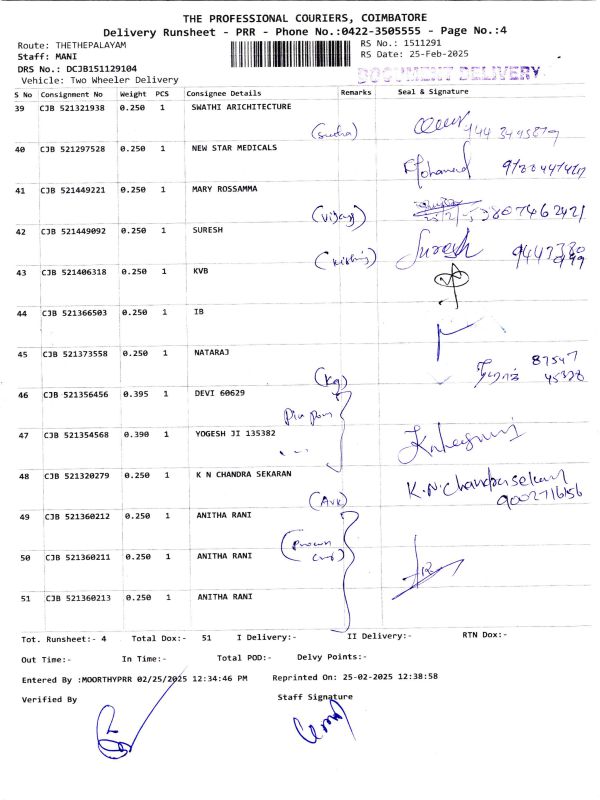 THE PROFESSIONAL COURIERS, COIMBATORE
Delivery Runsheet - PRR - Phone No.:0422-3505555 - Page No.:4
Route: THETHEPALAYAM RS No.: 1511291
Staff: MANI RS Date: 25-Feb-2025
DRS No.: DCJB151129104
Vehicle: Two Wheeler Delivery
DOCUMENT DELIVERY
S No Consignment No Weight PCS Consignee Details Remarks Seal & Signature
39 CJB 521321938 0.250 1 SWATHI ARICHITECTURE
40 CJB 521297528 0.250 1 NEW STAR MEDICALS
Mohamed
41 CJB 521449221 0.250 1 MARY ROSSAMMA
(Vijay)
42 CJB 521449092 0.250 1 SURESH
Suresh
43 CJB 521406318 0.250 1 KVB
44 CJB 521366503 0.250 1 IB
45 CJB 521373558 0.250 1 NATARAJ
87547
45378
(Kg)
46 CJB 521356456 0.395 1 DEVI 60629
47 CJB 521354568 0.390 1 YOGESH JI 135382
48 CJB 521320279 0.250 1 K N CHANDRA SEKARAN
K.N.Chandrasekaran
9002716156
49 CJB 521360212 0.250 1 ANITHA RANI
50 CJB 521360211 0.250 1 ANITHA RANI
51 CJB 521360213 0.250 1 ANITHA RANI
Tot. Runsheet:- 4 Total Dox:- 51 I Delivery:- II Delivery:- RTN Dox:-
Out Time:- In Time:- Total POD:- Delvy Points:-
Entered By :MOORTHYPRR 02/25/2025 12:34:46 PM Reprinted On: 25-02-2025 12:38:58
Verified By Staff Signature